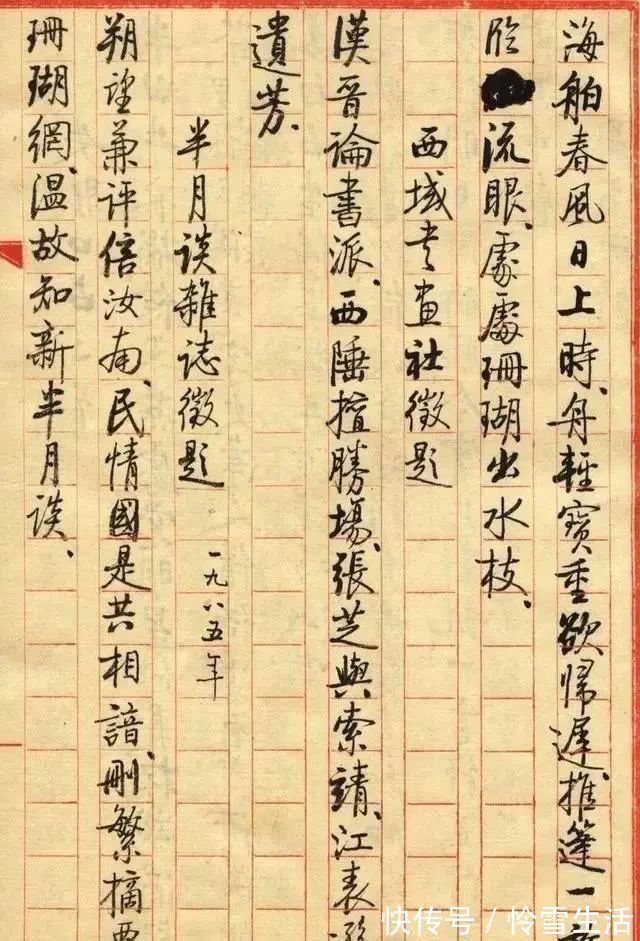 海舶春風日上時、舟輕寶重欲歸遲、推篷一
流眼、處處珊瑚出水枝、
西域書畫社徵題
漢晉論書派、西陲擅勝場、張芝與索靖、江表
遺芳、
半月談雜誌徵題 一九八五年
朔望兼評倍汝南、民情國是共相諳、刪繁摘要
珊瑚網、溫故知新半月談、
快传号／怜雪生活